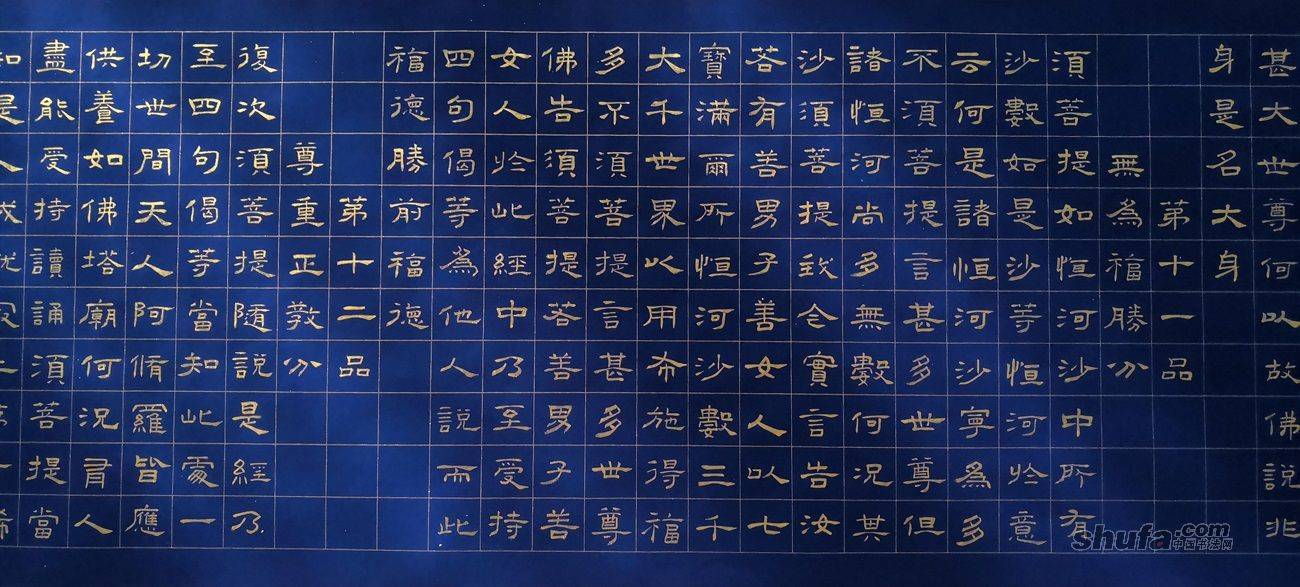 甚大世尊何以故佛說非
身是名大身
第十一品
無為福勝分
須菩提如恒河沙中所有
沙數如是沙等恒河於意
云何是諸恒河沙寧為多
不須菩提言甚多世尊但
諸恒河尚多無數何況其
沙須菩提我今實言告汝
若有善男子善女人以七
寶滿爾所恒河沙數三千
大千世界以用布施得福
多不須菩提言甚多世尊
佛告須菩提若善男子善
女人於此經中乃至受持
四句偈等為他人說而此
福德勝前福德
第十二品
尊重正教分
復次須菩提隨說是經乃
至四句偈等當知此處一
切世間天人阿脩羅皆應
供養如佛塔廟何況有人
盡能受持讀誦須菩提當
知是人成就一希
shufa.com
中国书法网